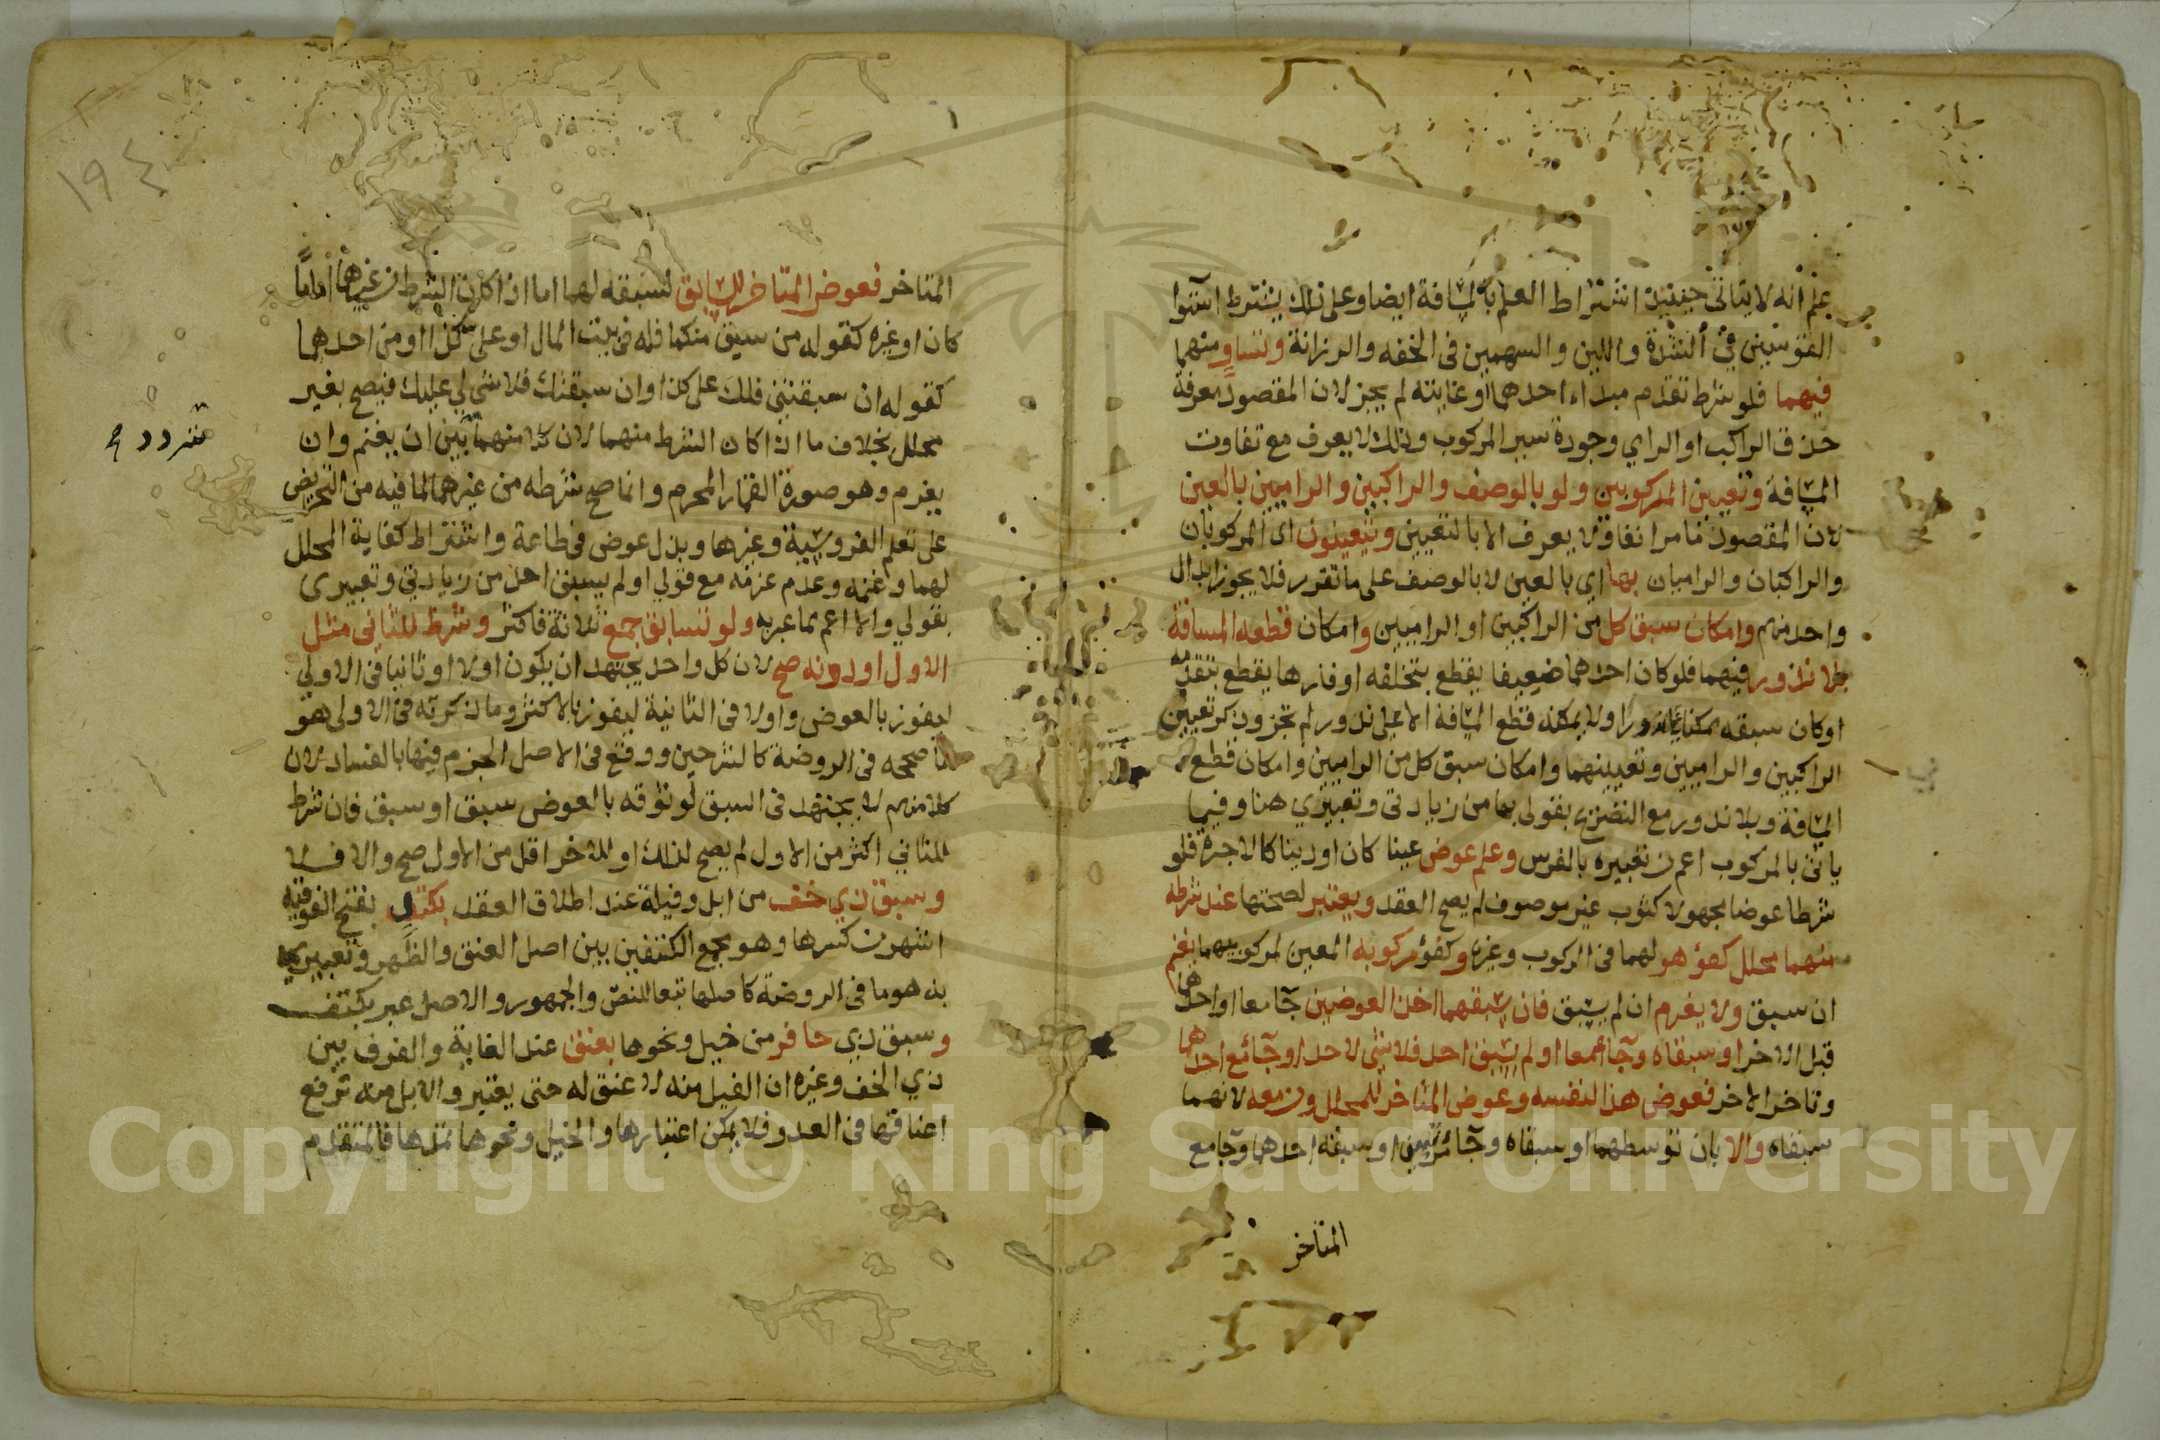 علم انه لا يتاتى حينئذ اشتراط العلم بالمسافة ايضا وعلى ذلك يشترط استوا
القوسين في الشدة واللين والسهمين في الخفه والرزانة وتساو منهما
فيهما فلو شرط تقدم مبداء احدهما او غايته لم يجز لان المقصود معرفة
حذق الراكب او الرامي وجودة سير المركوب وذلك لا يعرف مع تفاوت
المسافة وتعيين المركوبين ولو بالوصف والراكبين والراميين بالعين
لان المقصود لا يعرف الا بالتعيين ويتعينون اى المركوبان
والراكبان والراميان بها اي بالعين لا بالوصف على ما تقرر فلا يجوز ابدال
واحد منهم وامكان سبق كل من الراكبين او الراميين وامكان قطعه المسافة
بلا ندور فيهما فلو كان احدهما ضعيفا يقطع بتخلفه او فارها يقطع بتقدمه
او كان سبقه ممكنا على ندور او لا يمكنه قطع المسافة الا على ندور لم تجز وذكر تعيين
الراكبين والراميين وتعيينهما وامكان سبق كل من الراميين وامكان قطع
المسافة وبلا ندور مع التصريح بقولى بها من زيادتى وتعبيري هنا وفيما
ياتى بالمركوب اعم من تعبيره بالفرس وعلم عوض عينا كان او دينا كالاجرة فلو
شرطا عوضا مجهولا كثوب غير موصوف لم يصح العقد ويعتبر لصحتها عند شرطه
منهما محلل كفؤ هو لهما فى الركوب وغيره وكفؤ مركوبه المعين لمركوبيهما يغنم
ان سبق ولا يغرم ان لم يسبق فان سبقهما اخذ العوضين جآ معا او احدهما
قبل الاخر او سبقاه وجآ معا او لم يسبق احد فلا شى لاحد او جآ مع احدهما
وتاخر الاخر فعوض هذا لنفسه وعوض المتاخر للمحلل ومن معه لانهما
سبقاه والا بان توسطهما او سبقاه وجآ مرتبين او سبقه احدهما وجآ مع
المتاخر
١٩٤
المتاخر فعوض المتاخر للسابق لسبقه لهما اما اذا كان الشرط من غيرهما اماما
كان او غيره كقوله من سبق منكما فله فى بيت المال او على كذا او من احدهما
كقوله ان سبقتنى فلك على كذا وان سبقتك فلا شى لي عليك فيصح بغير
محلل بخلاف ما اذا كان الشرط منهما لان كلا منهما بين ان يغنم وان
يغرم وهو صورة القمار المحرم وانما صح شرطه من غيرهما لما فيه من التحريض
على تعلم الفروسية وغيرها وبذل عوض فى طاعة واشتراط كفاية المحلل
لهما وغنمه وعدم غرمه مع قولي او لم يسبق احد من زيادتي وتعبيرى
بقولي والا اعم مما عبر به ولو تسابق جمع ثلاثة فاكثر وشرط للثانى مثل
الاول او دونه صح لان كل واحد يجتهد ان يكون اولا او ثانيا فى الاولى
ليفوز بالعوض واولا فى الثانية ليفوز بالاكثر وما ذكرته فى الاولى هو
ما صححه فى الروضة كالشرحين ووقع فى الاصل الجزم فيها بالفساد لان
كلا منهم لا يجتهد فى السبق لوثوقه بالعوض سبق او سبق فان شرط
للثاني اكثر من الاول لم يصح لذلك او للاخر اقل من الاول صح والا فلا
وسبق ذي خف من ابل وفيلة عند اطلاق العقد بكتف بفتح الفوقية
اشهر من كسرها وهو مجمع الكتفين بين اصل العنق والظهر وتعبيري
به هو ما فى الروضة كاصلها تبعا للنص والجمهور والاصل عبر بكتف
وسبق ذي حافر من خيل ونحوها بعنق عند الغاية والفرق بين
ذي الخف وغيره ان الفيل منه لا عنق له حتى يعتبر والابل منه ترفع
اعناقها فى العدو فلا يمكن اعتبارها والخيل ونحوها تمدها فالمتقدم
Copyright © King Saud University